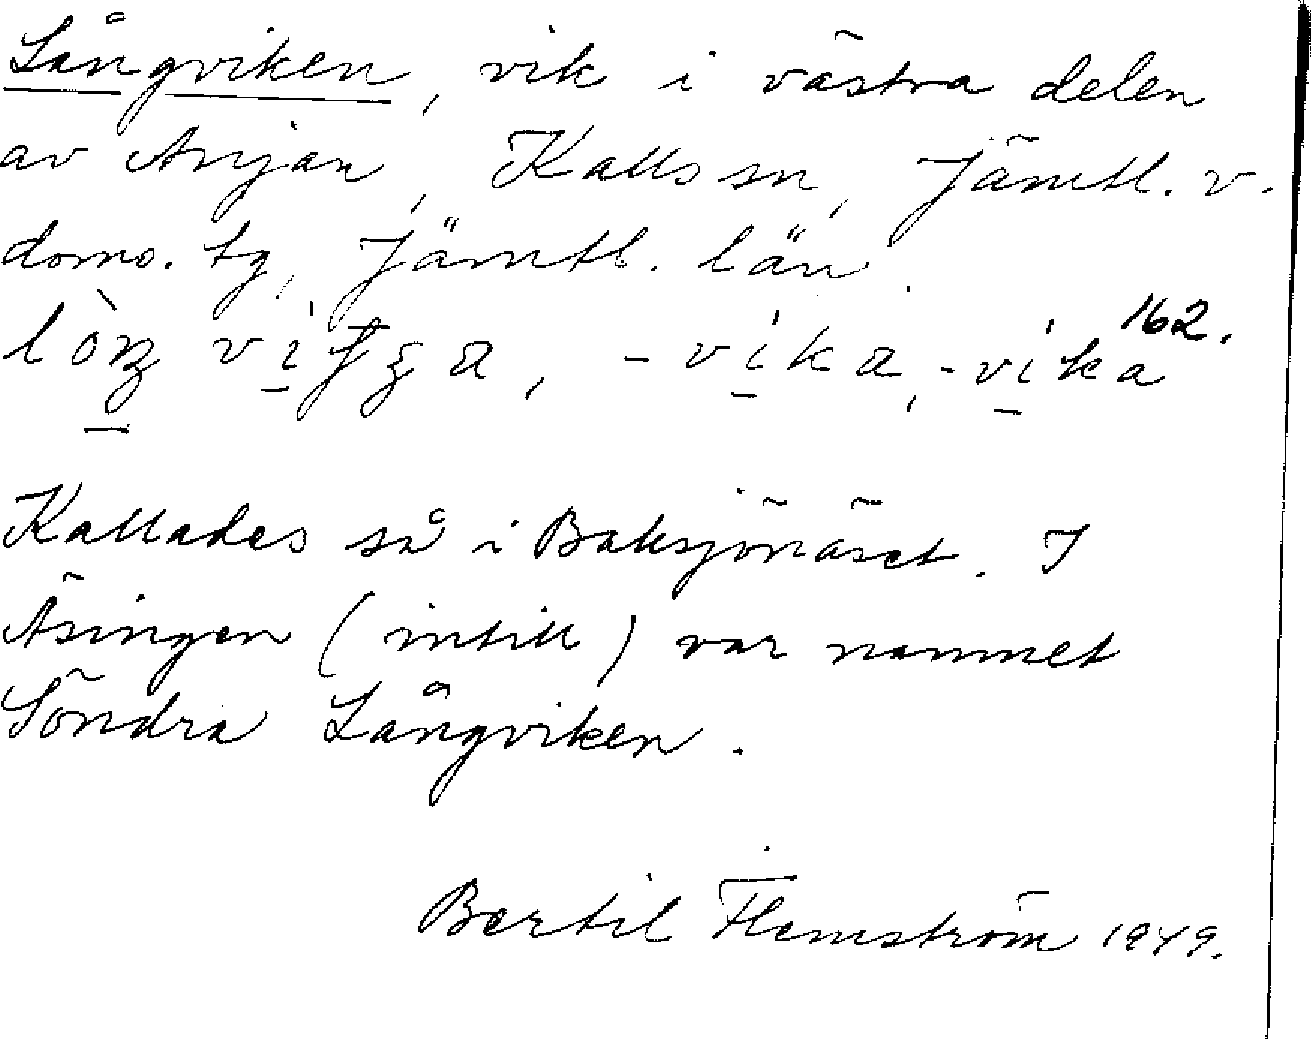 Långviken, vik i västra delen
av Anjan, Kalls sn, Jämtl. v.
doms. tg, Jämtl. län.
-vika, -vika 162.
Kallades så i Baksjönäset. I
Åsingen (intill) var namnet
Söndra Långviken.
Bertil Flemström 1949.